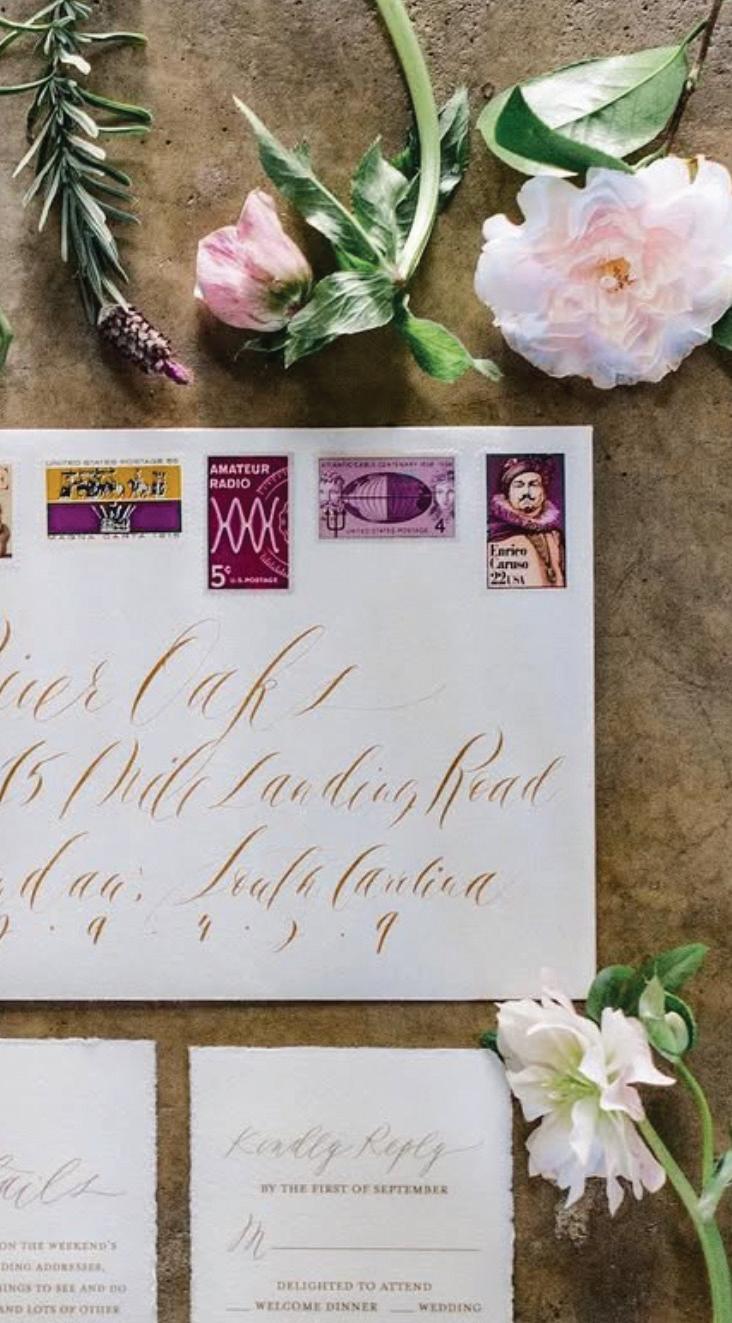 UNITED STATES POSTAGE 5¢
MAGNA CARTA 1215
AMATEUR
RADIO
5¢ U.S. POSTAGE
ATLANTIC CABLE CENTENARY 1858 1958
UNITED STATES POSTAGE 4¢
Enrico
Caruso
22 USA
River Oaks
15 Mile Landing Road
South Carolina
2 . 9 . 4 . 5 . 9
Kindly Reply
BY THE FIRST OF SEPTEMBER
M
DELIGHTED TO ATTEND
WELCOME DINNER WEDDING
ails
ON THE WEEKEND'S
DING ADDRESSES,
INGS TO SEE AND DO
AND LOTS OF OTHER